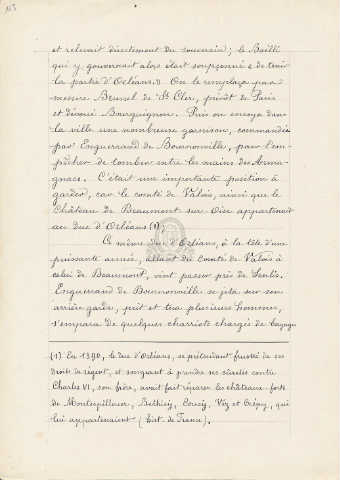 113
et relevait directement du souverain ; le Bailli
qui y gouvernait alors était soupçonné de tenir
le parti d'Orléans. On le remplaça par
messire Brunel de St Cler, prévôt de Paris
et dévoué Bourguignon. Puis on envoya dans
la ville une nombreuse garnison, commandée
par Enguerrand de Bournonville, pour l'em-
pêcher de tomber entre les mains des Arma-
gnacs. C'était une importante position à
garder, car le comté de Valois, ainsi que le
Château de Beaumont sur Oise appartenait
au duc d'Orléans (1).
Ce même duc d'Orléans, à la tête d'une
puissante armée, allant du Comté de Valois à
celui de Beaumont, vint passer près de Senlis.
Enguerrand de Bournonville se jeta sur son
arrière garde, prit et tua plusieurs hommes,
s'empara de quelques charriots chargés de bagages
(1) En 1390, le duc d'Orléans, se prétendant frustré de ses
droits de régent, et songeant à prendre ses sûretés contre
Charles VI, son frère, avait fait réparer les châteaux-forts
de Montespilloux, Bethisy, Coucy, Véz et Crépy, qui
lui appartenaient (hist. de France).